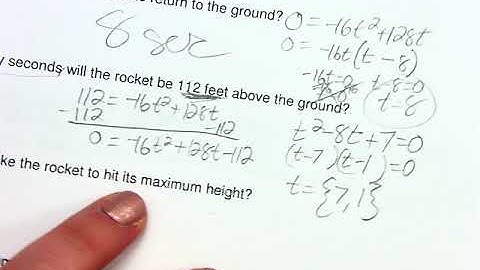 return to the ground?
8 sec
0 = -16t² + 128t
0 = -16t(t - 8)
-16t = 0
t - 8 = 0
t = 8
seconds will the rocket be 112 feet above the ground?
112 = -16t² + 128t
-112 -112
0 = -16t² + 128t - 112
t² - 8t + 7 = 0
(t - 7)(t - 1) = 0
t = {7, 1}
the rocket to hit its maximum height?